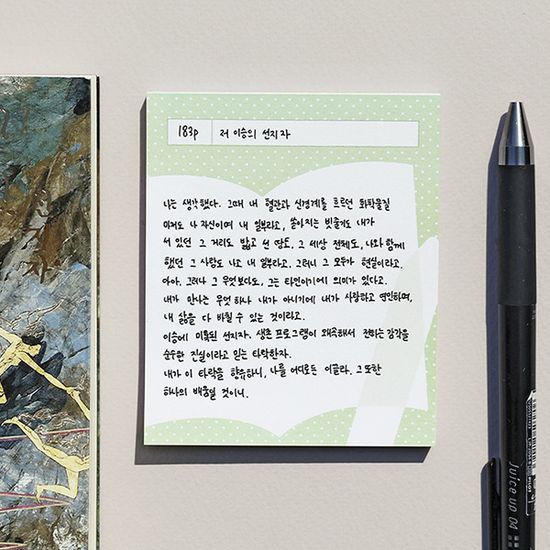 183p
저 이승의 선지자
나는 생각했다. 그때 내 혈관과 신경계를 흐르던 화학물질
마저도 나 자신이며 내 일부라고, 쏟아지는 빗줄기도 내가
서 있던 그 거리도 밟고 선 땅도. 그 세상 전체도, 나와 함께
했던 그 사람도 나고 내 일부라고. 그러니 그 모두가 현실이라고.
아아. 그러나 그 무엇보다도, 그는 타인이기에 의미가 있다고.
내가 만나는 무엇 하나 내가 아니기에 내가 사랑하고 연민하며,
내 삶을 다 바칠 수 있는 것이라고.
이승에 미혹된 선지자. 생존 프로그램이 왜곡해서 전하는 감각을
순수한 진실이라고 믿는 타락한 자.
내가 이 타락을 향유하니, 나를 이대로 둔 이끌라. 그 또한
하나의 배움일 것이니.
Juice up 04